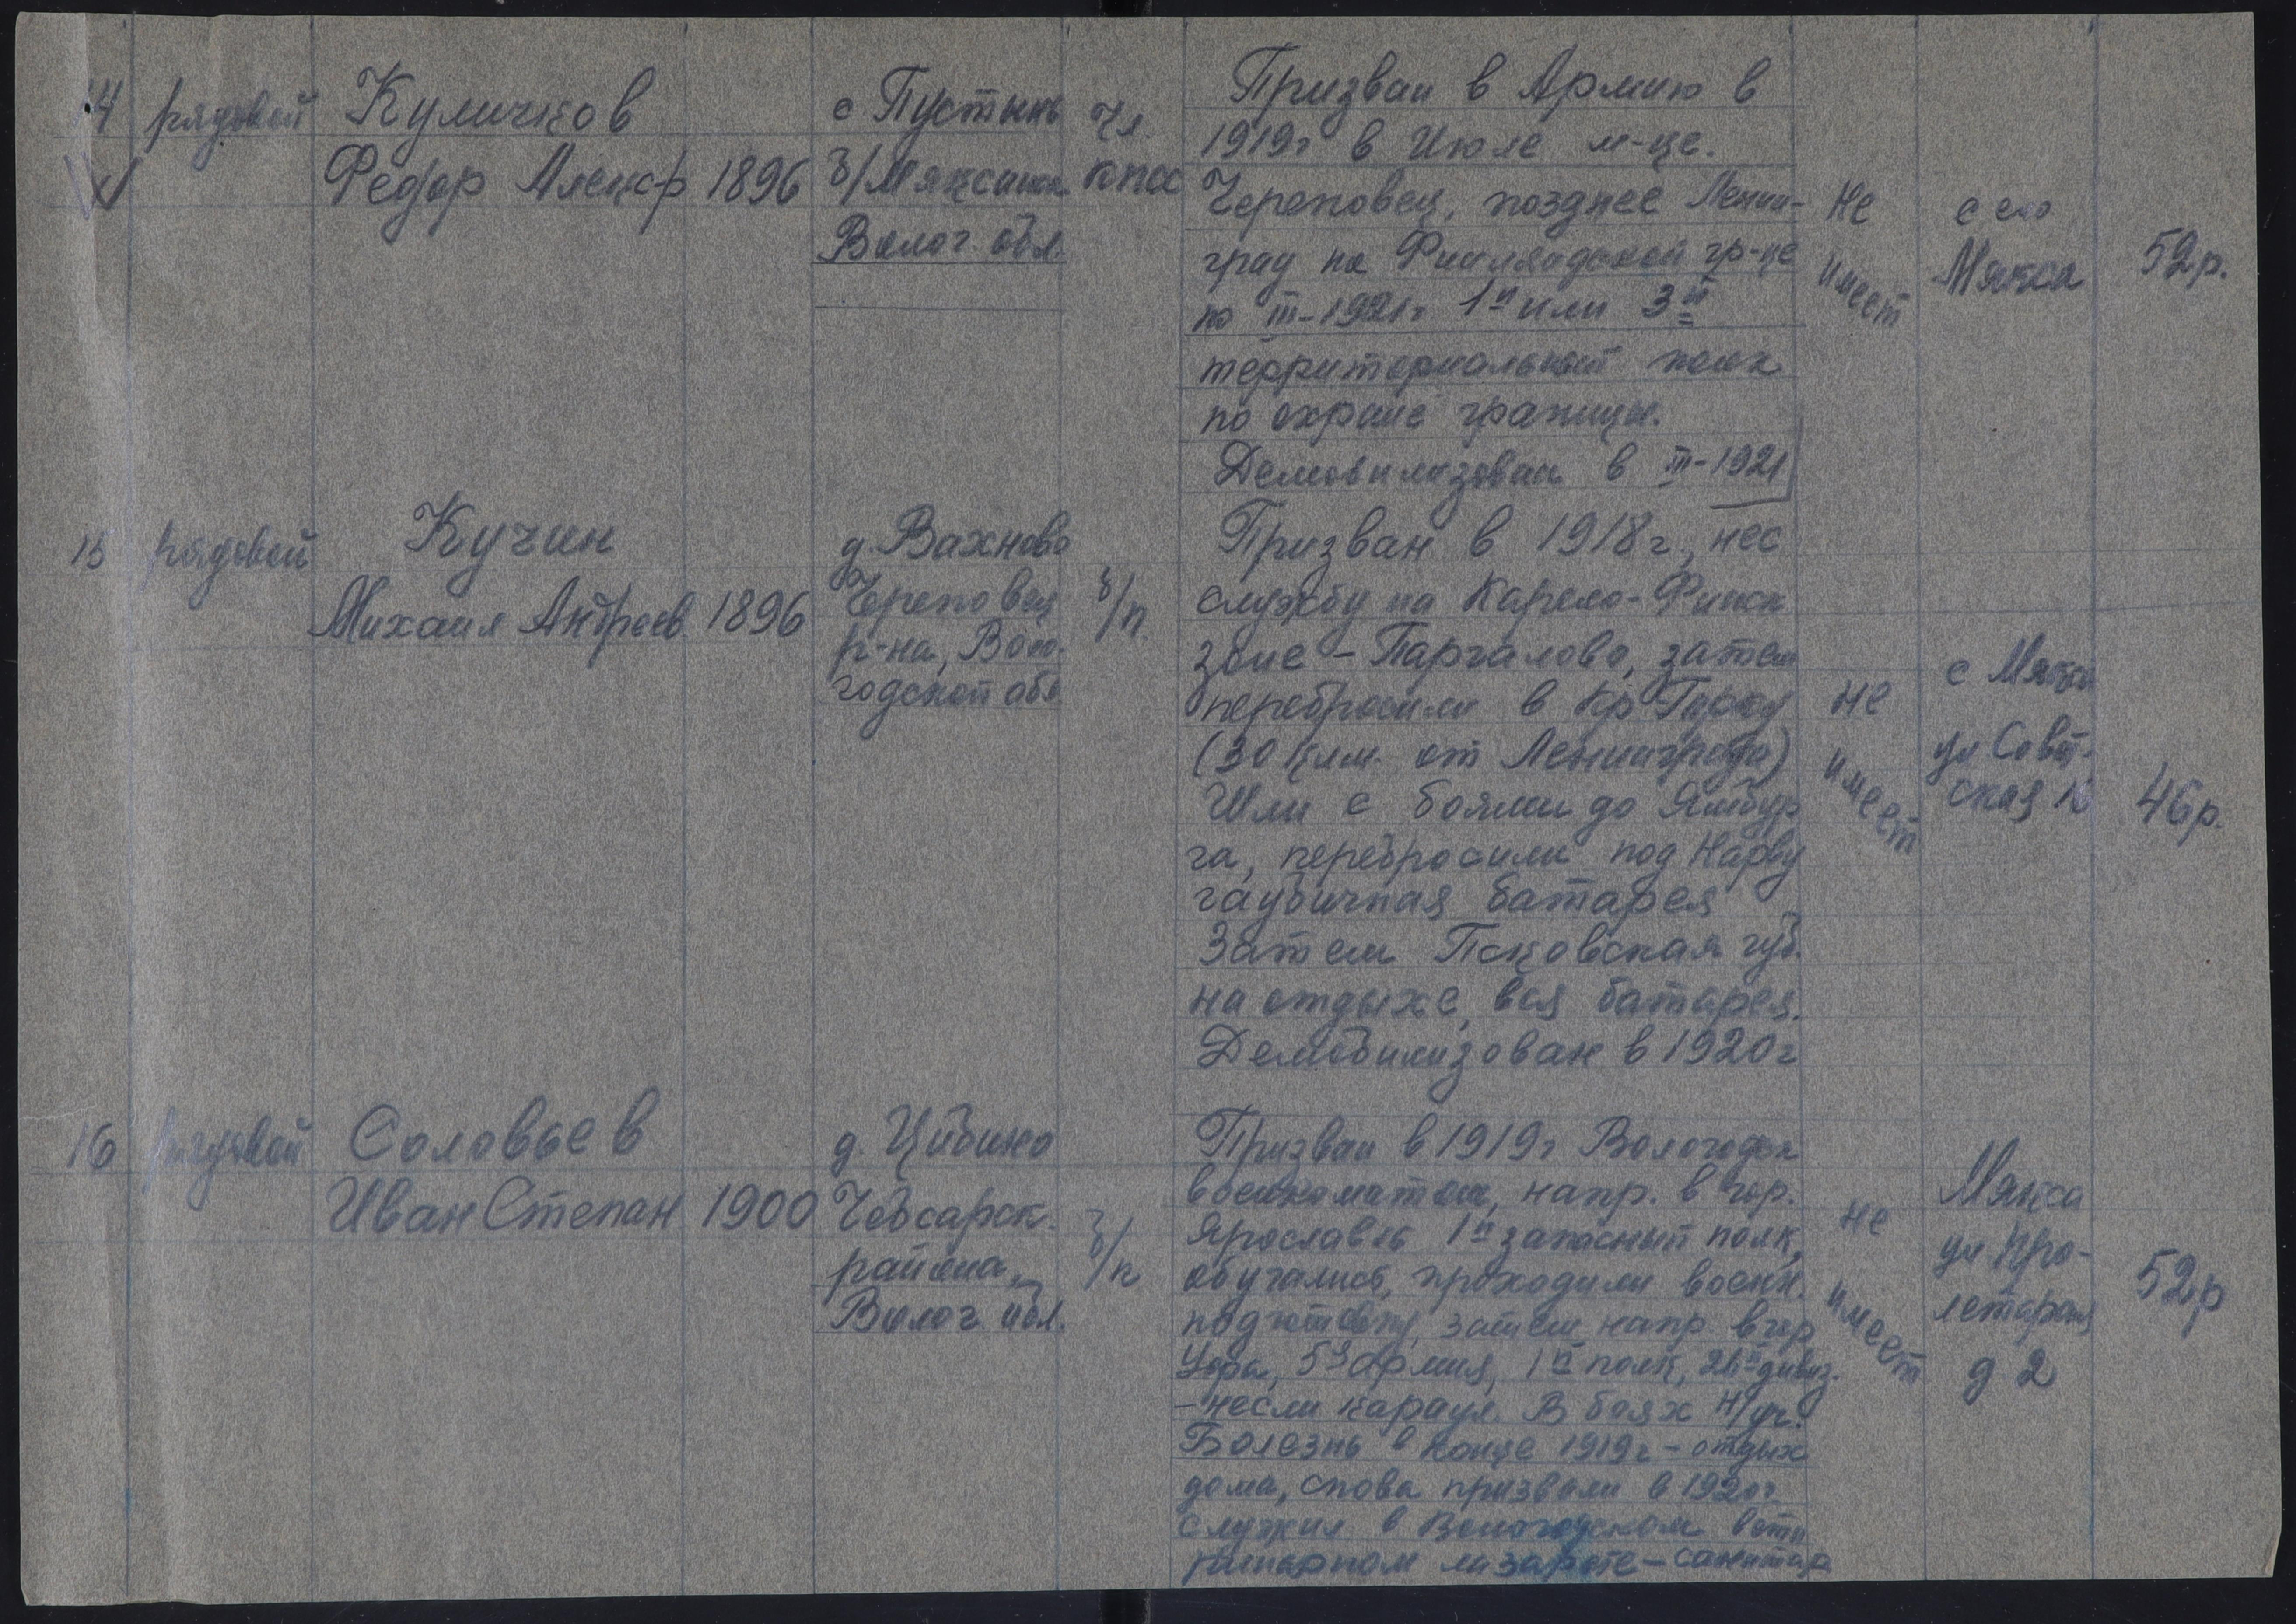 14 рядовой Куличков
Федор Алекс-р 1896
с Пустынь
б/Мяксинск
Волог. обл.
Чл.
КПСС
Призван в Армию в
1919г в Июле м-це.
Череповец, позднее Ленин-
град на Финляндской гр-це
по III-1921г 1й или 3й
территориальный полк
по охране границы.
Демобилизован в III-1921
Не
имеет
село
Мякса
52р.
15 рядовой Кучин
Михаил Андреев. 1896
д. Вахново
Череповец
р-на, Воло-
годской обл
б/п.
Призван в 1918г, нес
службу на Карело-Финск
зоне - Паргалово, затем
перебросили в Кр Горку
(30 клм. от Ленинграда)
Шли с боями до Ямбур
га, перебросили под Нарву
гаубичная батарея
Затем Псковская губ.
на отдыхе, вся батарея.
Демобилизован в 1920г
не
имеет
с Мякса
ул Совет-
ская
46р.
16 рядовой Соловьев
Иван Степан 1900
д. Цибино
Чебсарск.
района,
Волог. обл.
б/п
Призван в 1919г Вологодск
военкоматом, напр. в гор.
Ярославль 1й запасный полк,
обучались, проходили воен.
подготовку, затем напр в гор
Уфа, 5я Армия, 1й полк, 26й дивиз.
- несли караул. В боях н/уч.
Болезнь в конце 1919г - отдых
дома, снова призвали в 1920г.
служил в Вологодском вете
ринарном лазарете - санитар
не
имеет
Мякса
ул Про-
летарская
д 2
52р